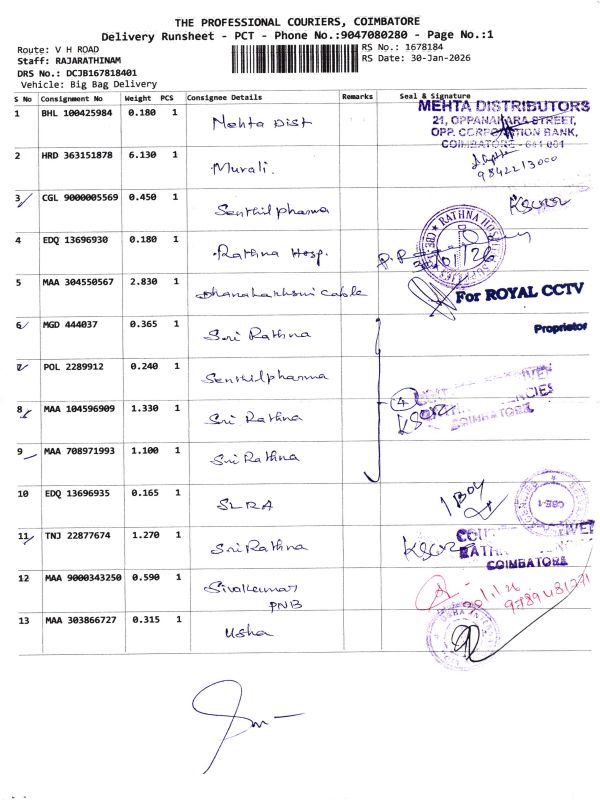 THE PROFESSIONAL COURIERS, COIMBATORE
Delivery Runsheet - PCT - Phone No.:9047080280 - Page No.:1
Route: V H ROAD
RS No.: 1678184
Staff: RAJARATHINAM
RS Date: 30-Jan-2026
DRS No.: DCJB167818401
Vehicle: Big Bag Delivery
S No Consignment No Weight PCS Consignee Details Remarks Seal & Signature
1 BHL 100425984 0.180 1 Mehta Dist
MEHTA DISTRIBUTORS
21, OPPANAKARA STREET,
OPP. CORPORATION BANK,
COIMBATORE - 641 001
9842213000
2 HRD 363151878 6.130 1 Murali.
3 CGL 9000005569 0.450 1 Senthilpharma
4 EDQ 13696930 0.180 1 Rathna Hosp.
5 MAA 304550567 2.830 1 Dhanalakshmi Cable
For ROYAL CCTV
Proprietor
6 MGD 444037 0.365 1 Sri Rathna
7 POL 2289912 0.240 1 Senthilpharma
8 MAA 104596909 1.330 1 Sri Rathna
4
COIMBATORE
9 MAA 708971993 1.100 1 Sri Rathna
10 EDQ 13696935 0.165 1 SLRA
1 BOY
11 TNJ 22877674 1.270 1 Sri Rathna
COIMBATORE
12 MAA 9000343250 0.590 1 Sivakumar
PNB
13 MAA 303866727 0.315 1 Usha